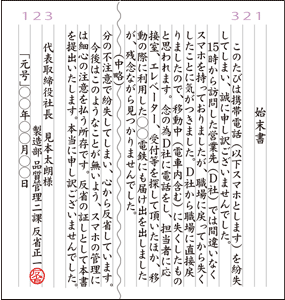 321
123
始末書
このたびは携帯電話(以下スマホとします)を紛失
してしまい、誠に申し訳ございませんでした。
15時から訪問した営業先(D社)では間違いなく
スマホを持っておりましたが、職場に戻ってから失く
したことに気がつきました。D社から職場に直接戻
りましたので、移動中(電車内含む)に失くしたもの
と思われます。念の為D社に電話をし、担当者に応
接室、エレベーター、受付等を探して頂いたほか、移
動の際に利用した〇〇電鉄にも届け出をしました
が、残念ながら見つかりませんでした。
(中略)
分の不注意で紛失してしまい、心から反省しています。
今後はこのようなことが無いよう、スマホの管理に
は細心の注意を払う所存で、反省の証しとして本書
を提出いたします。本当に申し訳ございませんでした。
代表取締役社長 見本太朗様
製造部 品質管理二課 反省正一
「元号」〇〇年〇〇月〇〇日